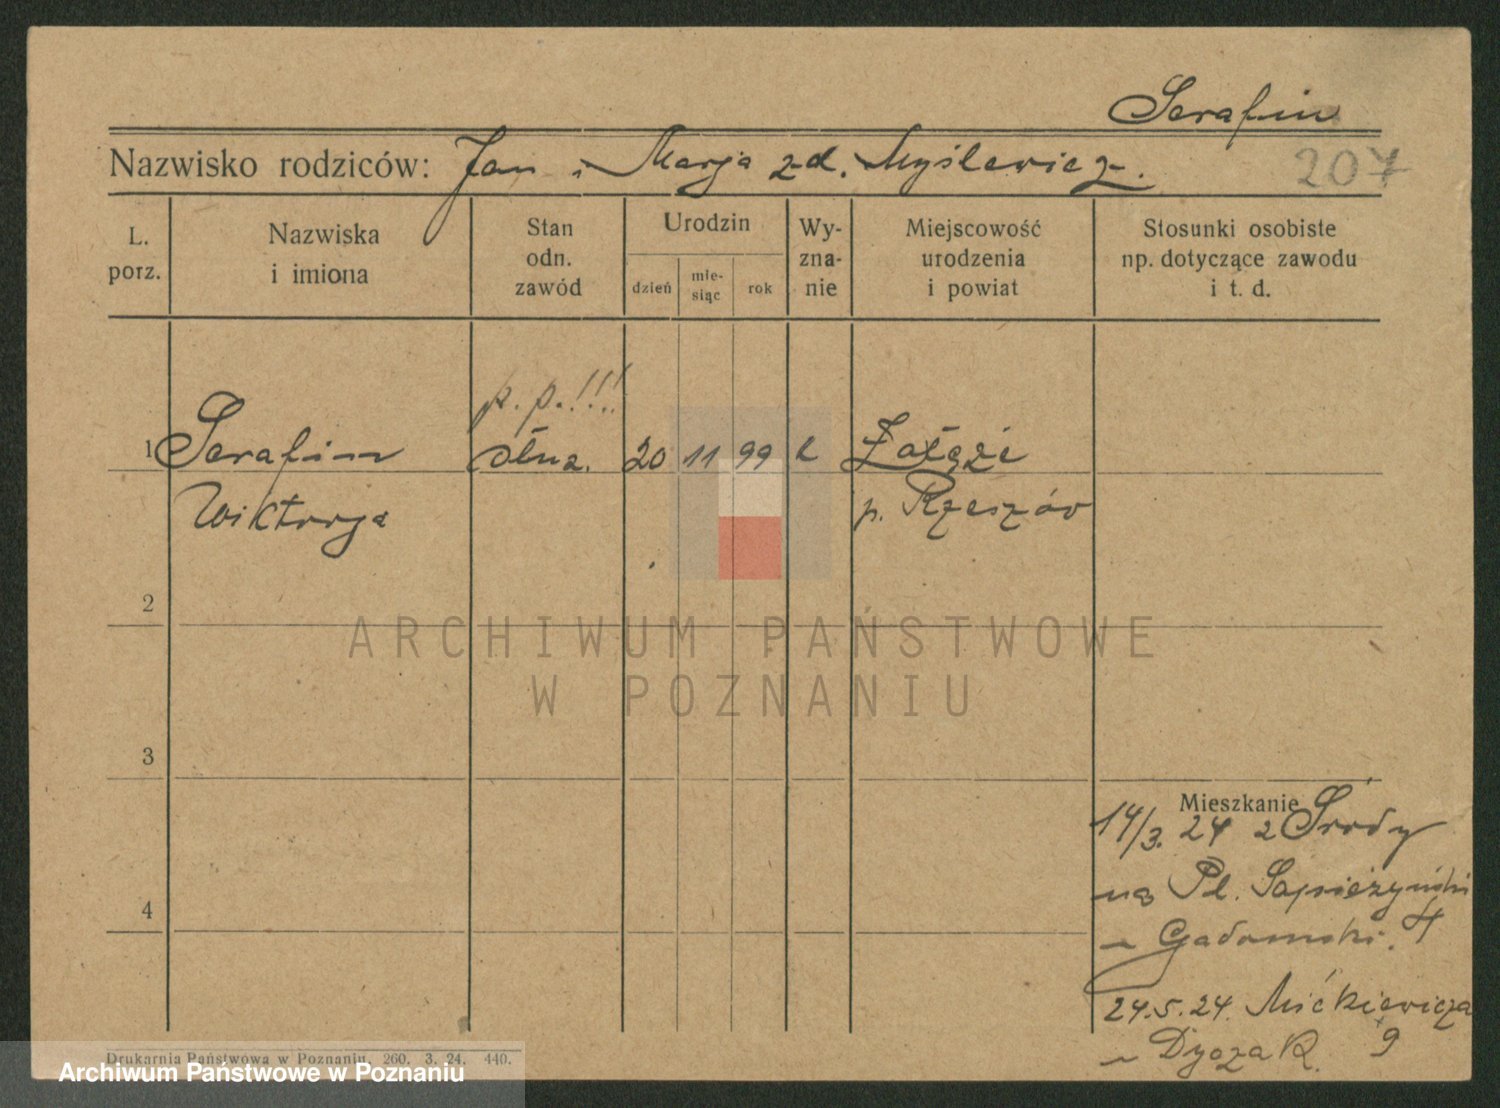 Serafin
Nazwisko rodziców: Jan i Marja zd. Myślewicz.
207
L. porz.
Nazwiska i imiona
Stan odn. zawód
Urodzin
dzień
mie-siąc
rok
Wy-zna-nie
Miejscowość urodzenia i powiat
Stosunki osobiste np. dotyczące zawodu i t. d.
p. p.!!!
1 Serafin 20 11 99 k Załęże
Wiktorja p. Rzeszów
2
ARCHIWUM PAŃSTWOWE
W POZNANIU
3
Mieszkanie
14/3. 24 z Środy
na Pl. Sapieżyński
4
Gadomski. 4
24.5.24. Mickiewicza
9
Drukarnia Państwowa w Poznaniu. 260. 3. 24. 440.
Archiwum Państwowe w Poznaniu